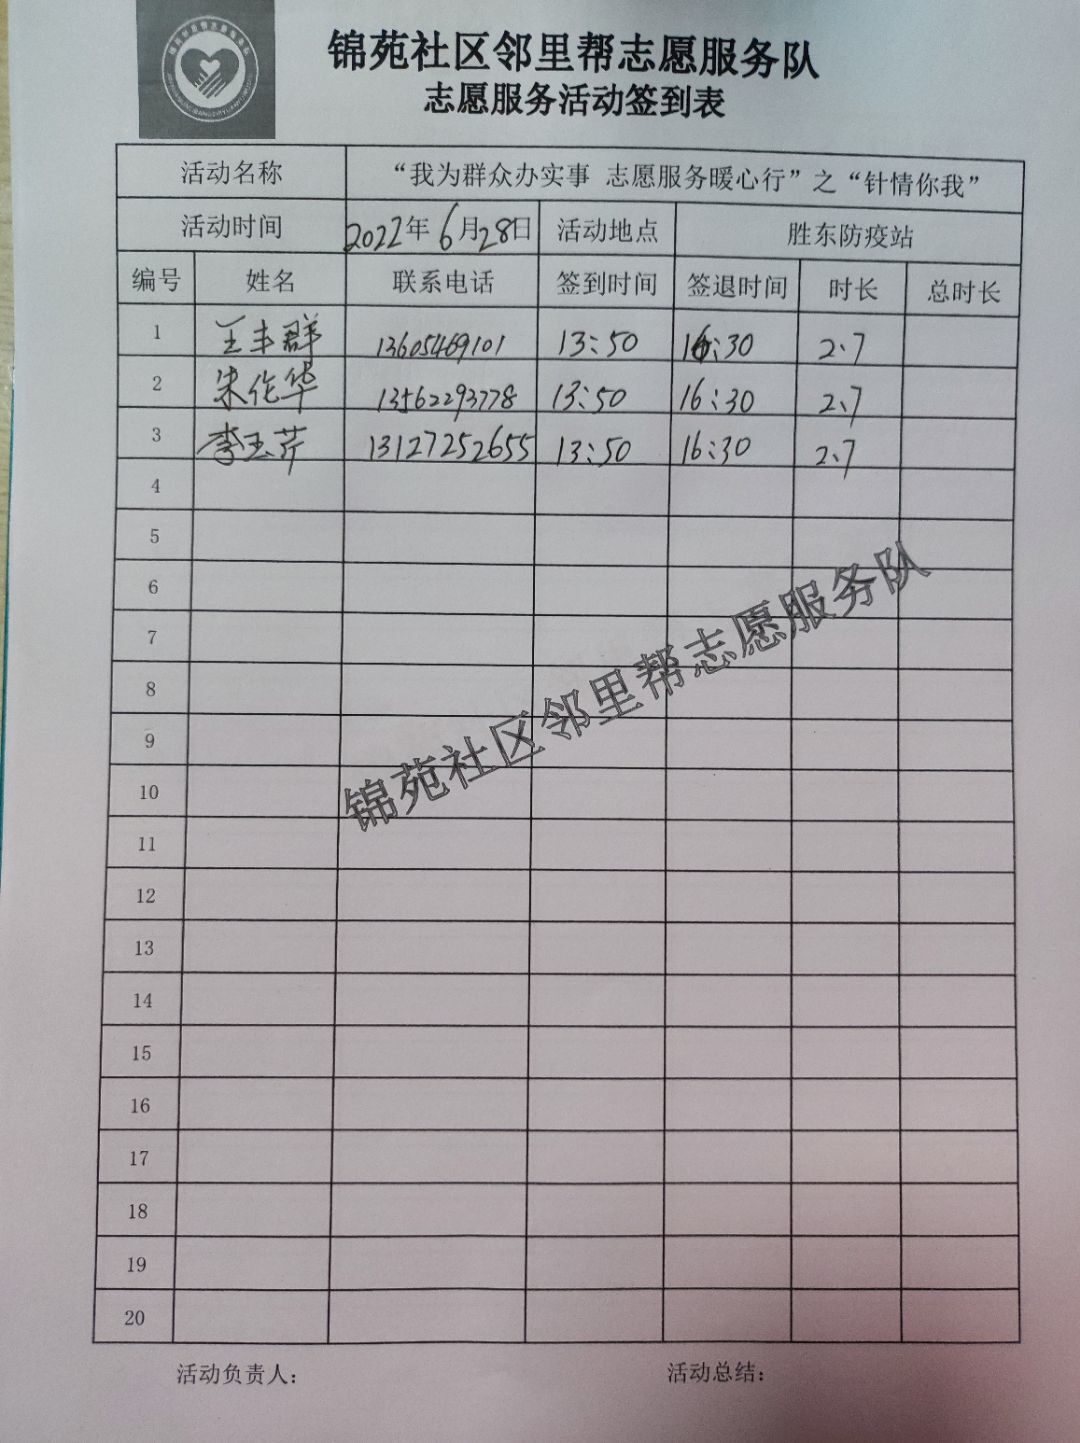 锦苑社区邻里帮志愿服务队
志愿服务活动签到表
活动名称 “我为群众办实事 志愿服务暖心行”之“针情你我”
活动时间 2022年6月28日 活动地点 胜东防疫站
编号 姓名 联系电话 签到时间 签退时间 时长 总时长
1 王丰群 13605469101 13:50 16:30 2.7
2 朱作华 13562293778 13:50 16:30 2.7
3 李玉芹 13127252655 13:50 16:30 2.7
4
5
6
7
8
9
10
11
12
13
14
15
16
17
18
19
20
锦苑社区邻里帮志愿服务队
活动负责人: 活动总结: